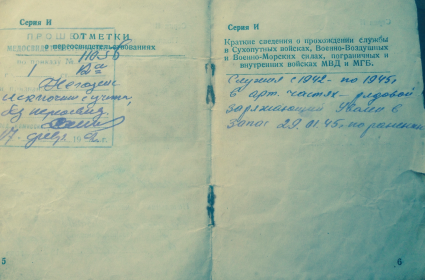 Серия И
ПРОШЕЛ
ОТМЕТКИ
МЕДОСВИД
переосвидетельствованиях
по приказу №
1
Негоден
исключен с учета
17 февр
5
Серия И
Краткие сведения о прохождении службы
в Сухопутных войсках, Военно-Воздушных
и Военно-Морских силах, пограничных и
внутренних войсках МВД и МГБ.
Служил с 1942 по 1945г
в арт. частях - рядовой
заряжающий Уволен в
запас 29.01.45 по ранению
6